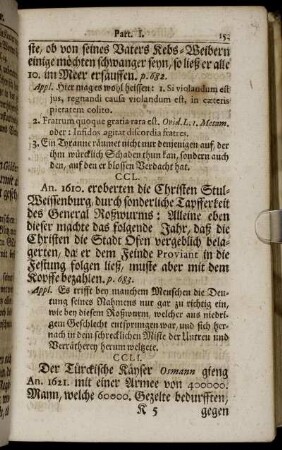 Part. I. 15;
ste, ob von seines Vaters Kebs-Weibern
einige möchten schwanger seyn, so ließ er alle
10. im Meer ersäuffen. p. 682.
Appl. Hier mag es wohl heissen: 1. Si violandum est
jus, regnandi causa violandum est, in cæteris
pietatem colito.
2. Fratrum quoque gratia rara est. Ovid. L. 1. Metam.
oder: Infidos agitat discordia fratres.
3. Ein Tyranne räumet nicht nur denjenigen auf, der
ihm würcklich Schaden thun kan, sondern auch
den, auf den er blossen Verdacht hat.
CCL.
An. 1610. eroberten die Christen Stul-
Weissenburg, durch sonderliche Tapfferkeit
des General Roßwurms: Alleine eben
dieser machte das folgende Jahr, daß die
Christen die Stadt Ofen vergeblich bela-
gerten, da er dem Feinde Proviant in die
Festung folgen ließ, muste aber mit dem
Kopffe bezahlen. p. 683.
Appl. Es trifft bey manchem Menschen die Deu-
tung seines Nahmens nur gar zu richtig ein,
wie bey diesem Roßwurm, welcher aus niedri-
gem Geschlecht entsprungen war, und sich her-
nach in dem schrecklichen Miste der Untreu und
Verrätherey herum weltzete.
CCLI.
Der Türckische Käyser Osmann gieng
An. 1621. mit einer Armee von 400000.
Mann, welche 60000. Gezelte bedurfften,
K 5 gegen